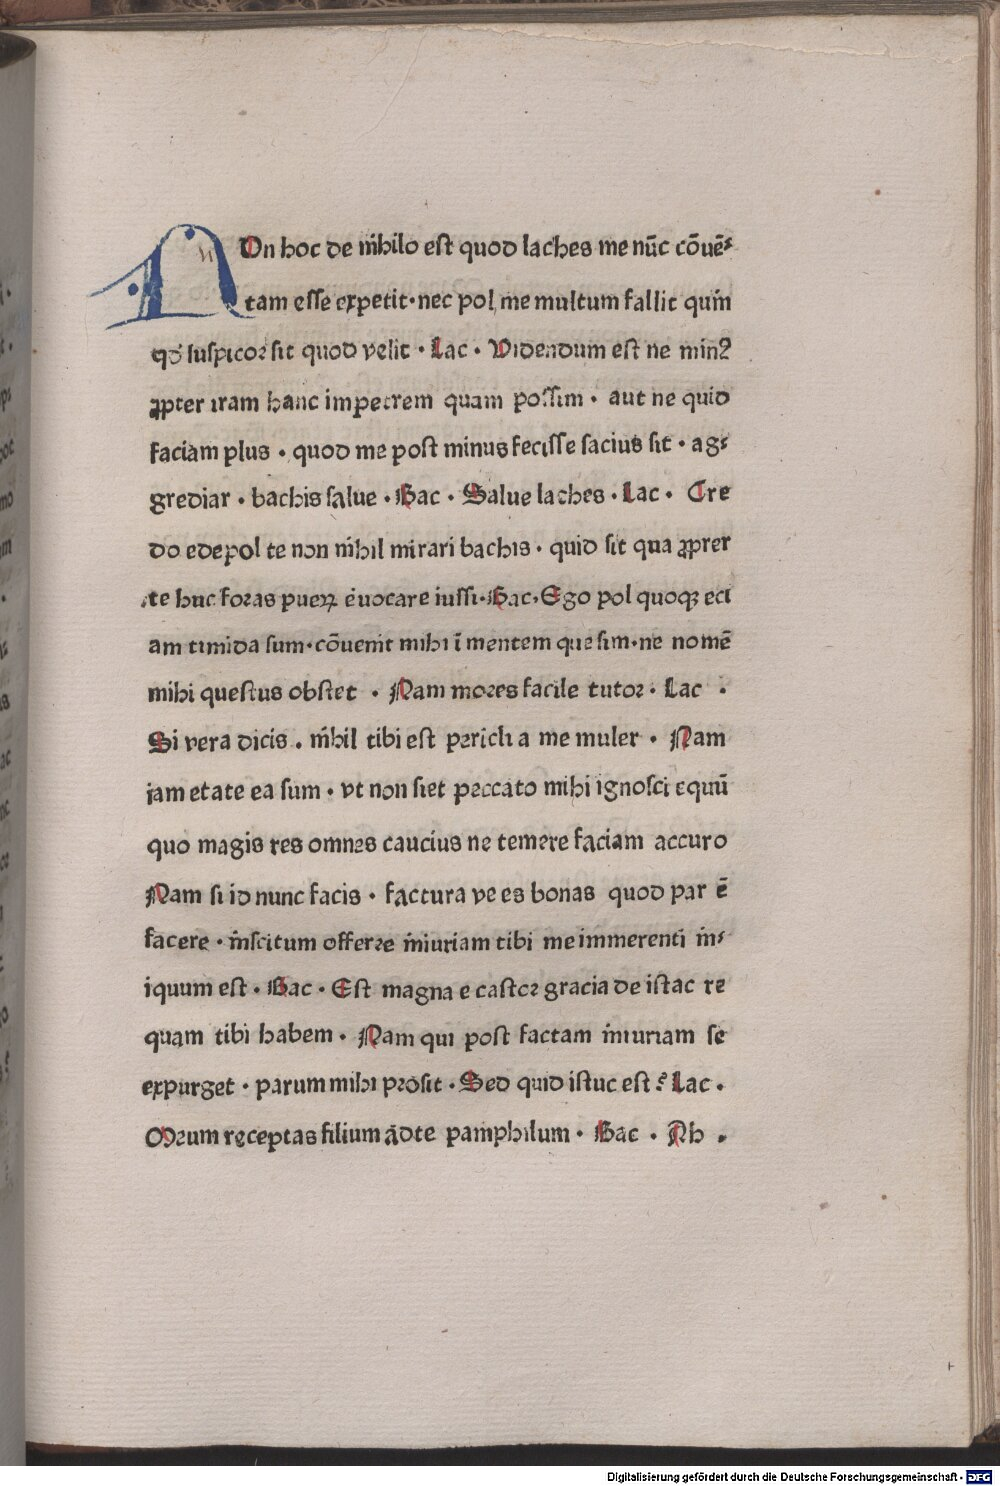 NOn hoc de nihilo est quod laches me nūc cōuē⸗
tam esse expetit · nec pol me multum fallit quin
qd suspicor sit quod velit · Lac · Videndum est ne minꝰ
ꝓpter iram hanc impetrem quam possim · aut ne quid
faciam plus · quod me post minus fecisse sacius sit · ag⸗
grediar · bachis salue · Bac · Salue laches · Lac · Cre
do edepol te non nihil mirari bachis · quid sit qua ꝓprer
te huc foras pueꝝ euocare iussi · Bac · Ego pol quoqꝫ eci
am timida sum · cōuenit mihi ī mentem que sim · ne nomē
mihi questus obstet · Nam mores facile tutor · Lac ·
Si vera dicis . nihil tibi est pericli a me muler · Nam
iam etate ea sum · vt non siet peccato mihi ignosci equū
quo magis res omnes caucius ne temere faciam accuro
Nam si id nunc facis · factura ve es bonas quod par ē
facere · inscitum offerre iniuriam tibi me immerenti in⸗
iquum est · Bac · Est magna e castor gracia de istac re
quam tibi habem · Nam qui post factam iniuriam se
expurget · parum mihi prosit · Sed quid istuc est ? Lac .
Meum receptas filium ādte pamphilum · Bac · Ah .
Digitalisierung gefördert durch die Deutsche Forschungsgemeinschaft - DFG